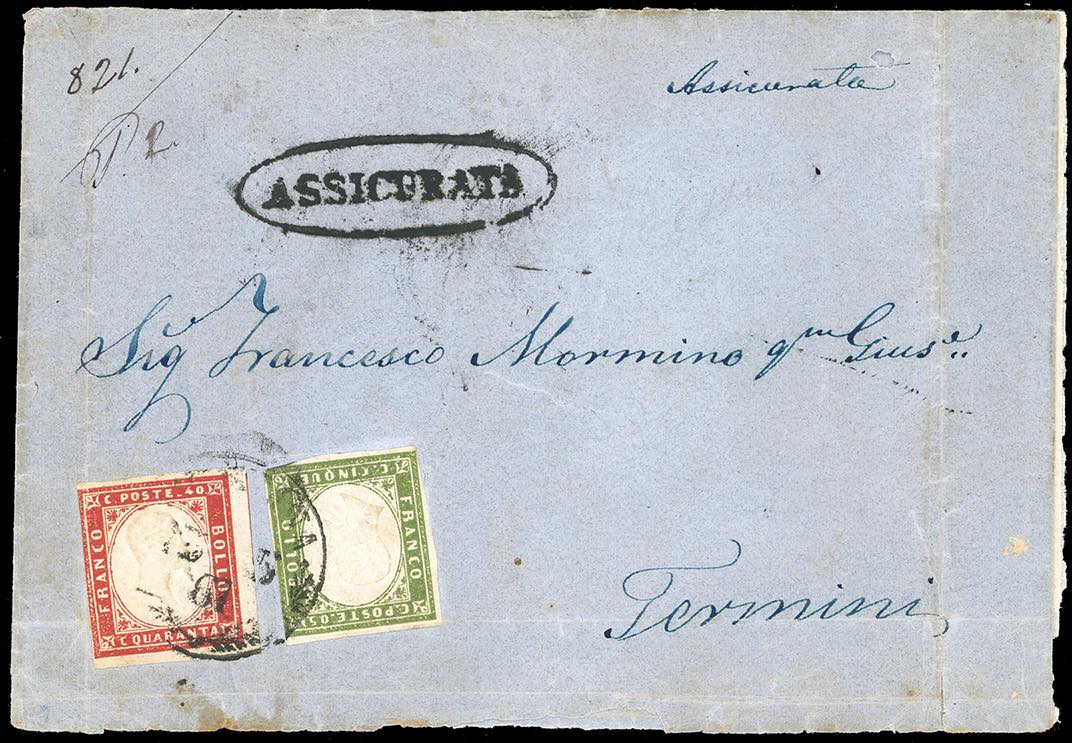 821.
2.
Assicurata
ASSICURATA
Sig Francesco Mormino qm Gius.e
C. POSTE. 40
FRANCO
BOLLO
C QUARANTA
C. CINQUE
FRANCO
BOLLO
C. POSTE. 05
Termini